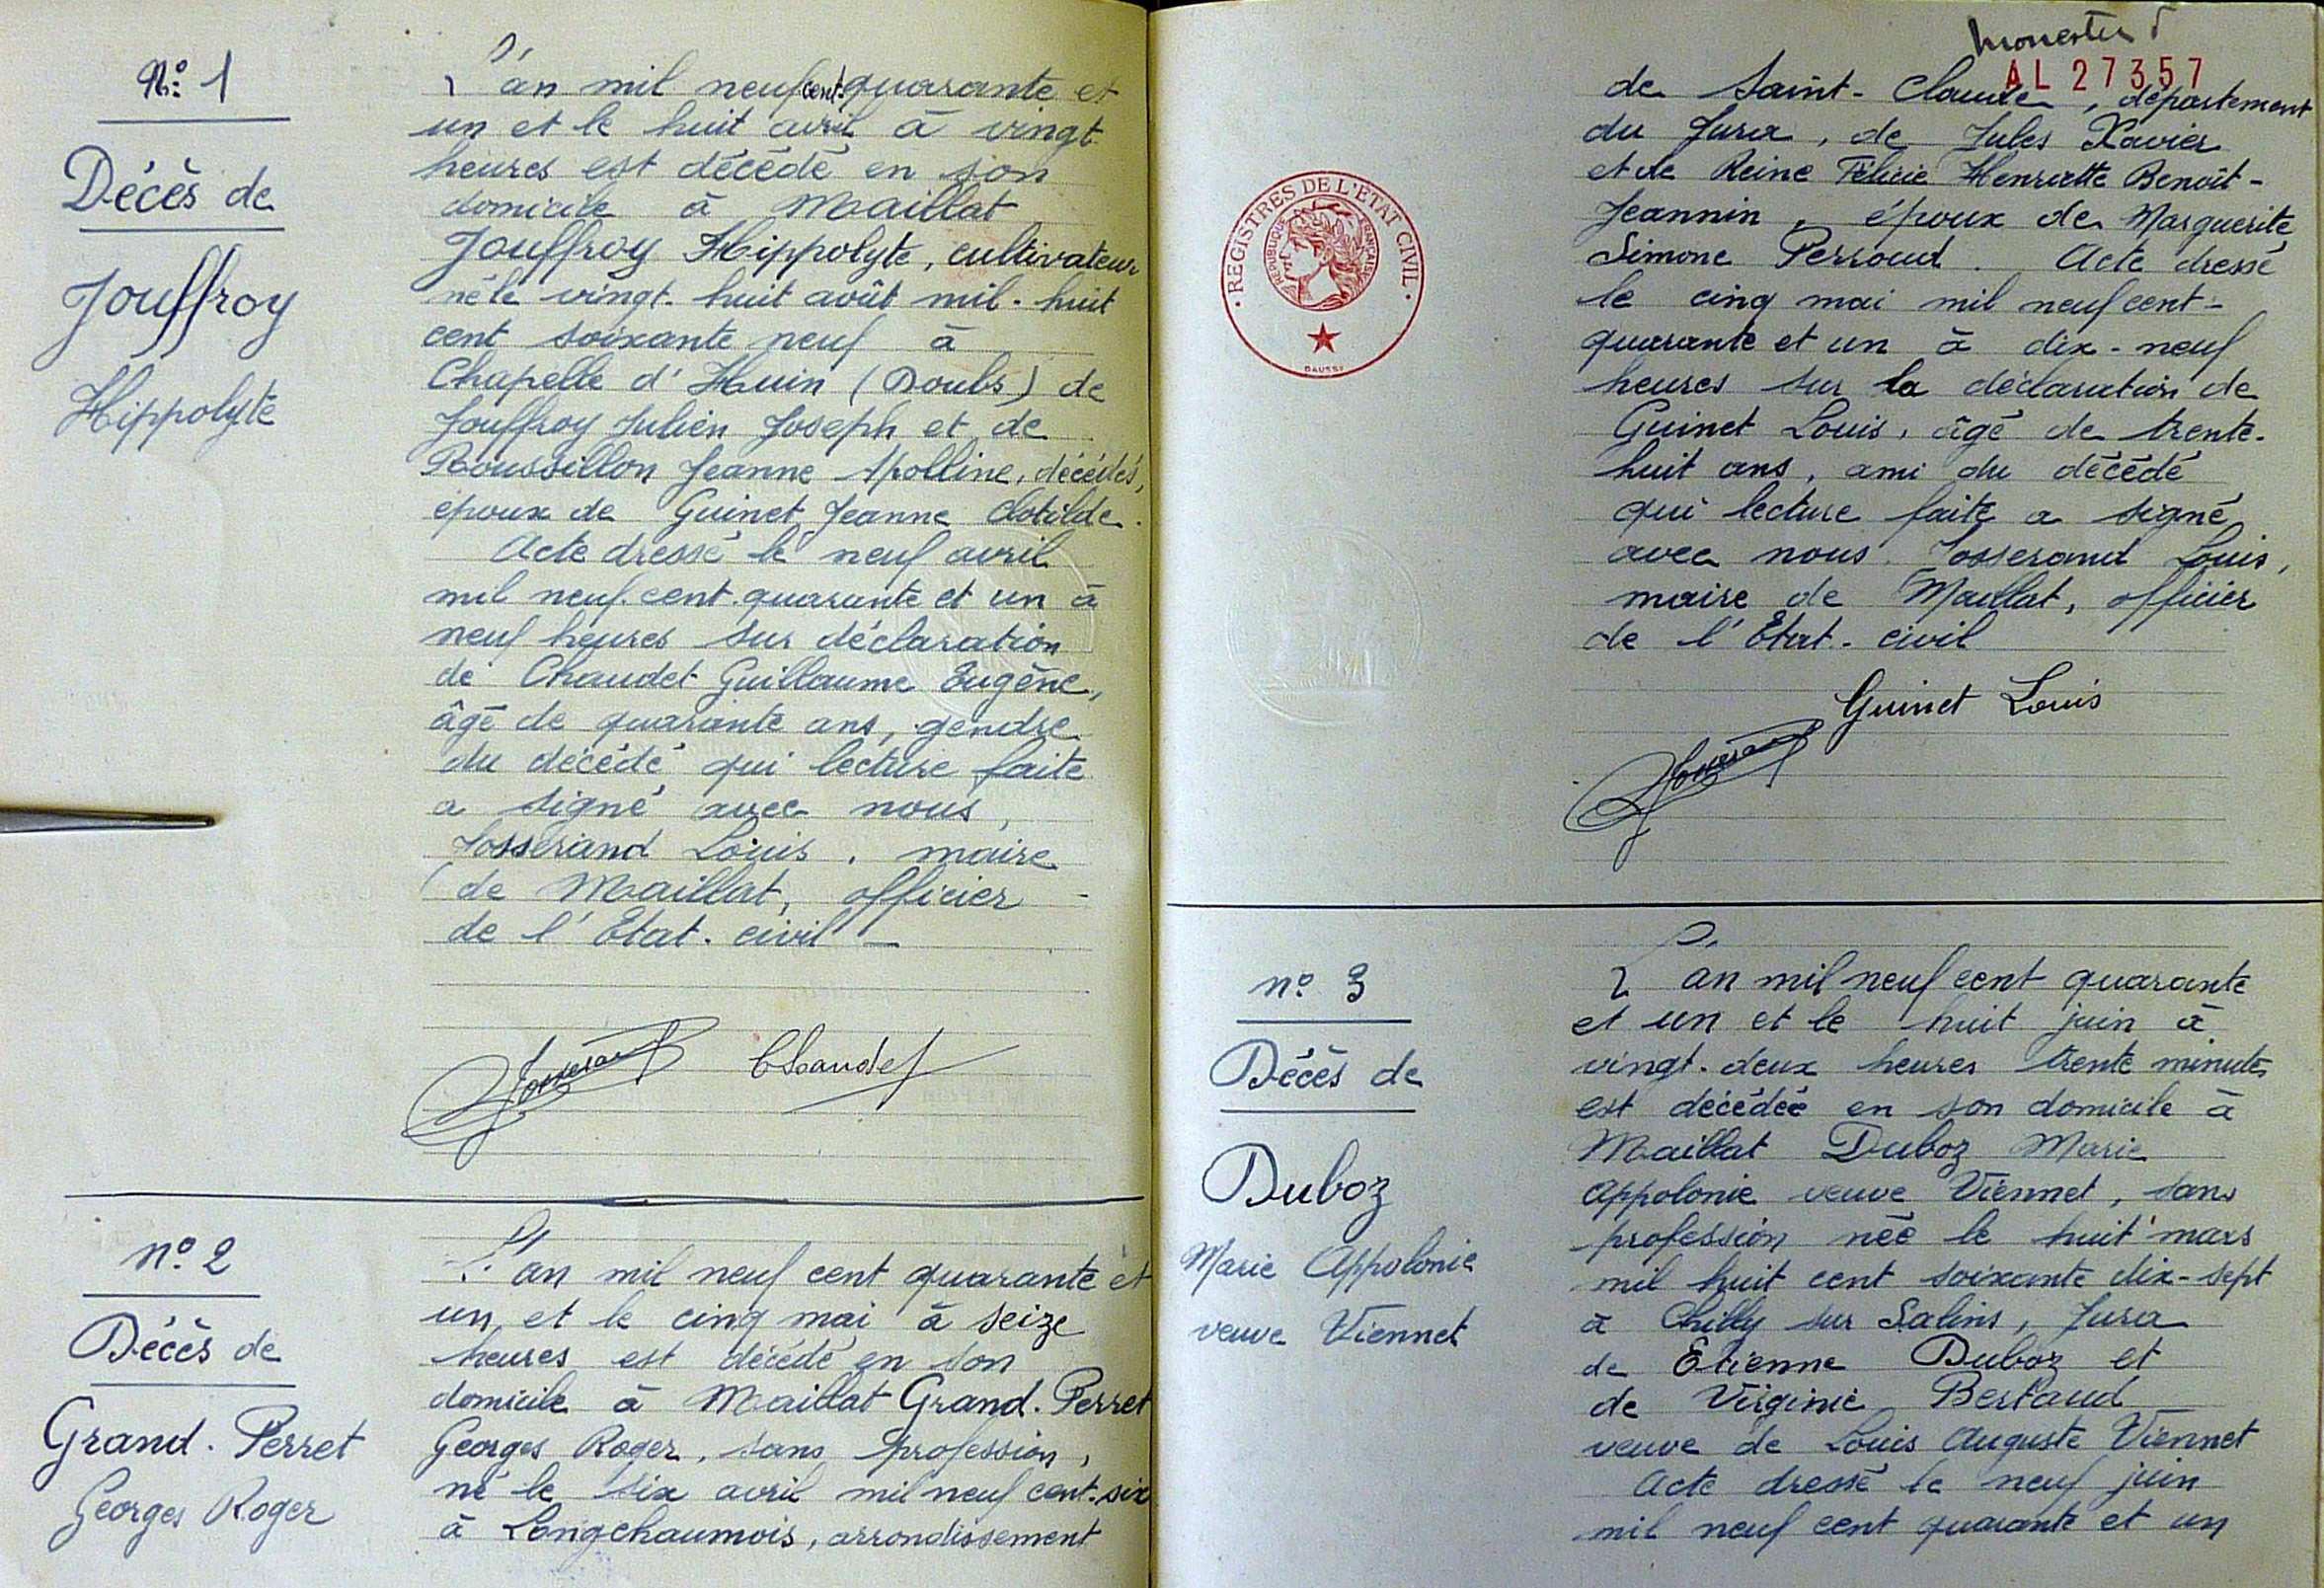 N° 1
Décès de
Jouffroy
Hippolyte
L'an mil neuf cent quarante et
un et le huit avril à vingt
heures est décédé en son
domicile à Maillat
Jouffroy Hippolyte, cultivateur
né le vingt-huit août mil-huit
cent soixante neuf à
Chapelle d'Huin (Doubs) de
Jouffroy Julien Joseph et de
Roussillon Jeanne Apolline, décédés,
époux de Guinet Jeanne Clotilde.
Acte dressé le neuf avril
mil neuf cent quarante et un à
neuf heures sur déclaration
de Chaudet Guillaume Eugène,
âgé de quarante ans, gendre
du décédé qui lecture faite
a signé avec nous,
Josserand Louis, maire
de Maillat, officier -
de l'Etat-civil -
Josserand Chaudet
n° 2
Décès de
Grand-Perret
Georges Roger
L'an mil neuf cent quarante et
un, et le cinq mai à seize
heures est décédé en son
domicile à Maillat Grand-Perret
Georges Roger, sans profession,
né le six avril mil neuf cent-six
à Longchaumois, arrondissement
AL 27357
de Saint-Claude, département
du Jura, de Jules Xavier
et de Reine Félicie Henriette Benoît-
Jeannin, époux de Marguerite
Simone Perroud. Acte dressé
le cinq mai mil neuf cent-
quarante et un à dix-neuf
heures sur la déclaration de
Guinet Louis, âgé de trente-
huit ans, ami du décédé
qui lecture faite a signé
avec nous Josserand Louis,
maire de Maillat, officier
de l'Etat-civil
Guinet Louis
Josserand
REGISTRES DE L'ÉTAT CIVIL
RÉPUBLIQUE FRANÇAISE
n° 3
Décès de
Duboz
Marie Appolonie
veuve Viennet
L'an mil neuf cent quarante
et un et le huit juin à
vingt-deux heures trente minutes
est décédée en son domicile à
Maillat Duboz Marie
Appolonie veuve Viennet, sans
profession née le huit mars
mil huit cent soixante dix-sept
à Chilly sur Salins, Jura
de Etienne Duboz et
de Virginie Bertaud
veuve de Louis Auguste Viennet
Acte dressé le neuf juin
mil neuf cent quarante et un